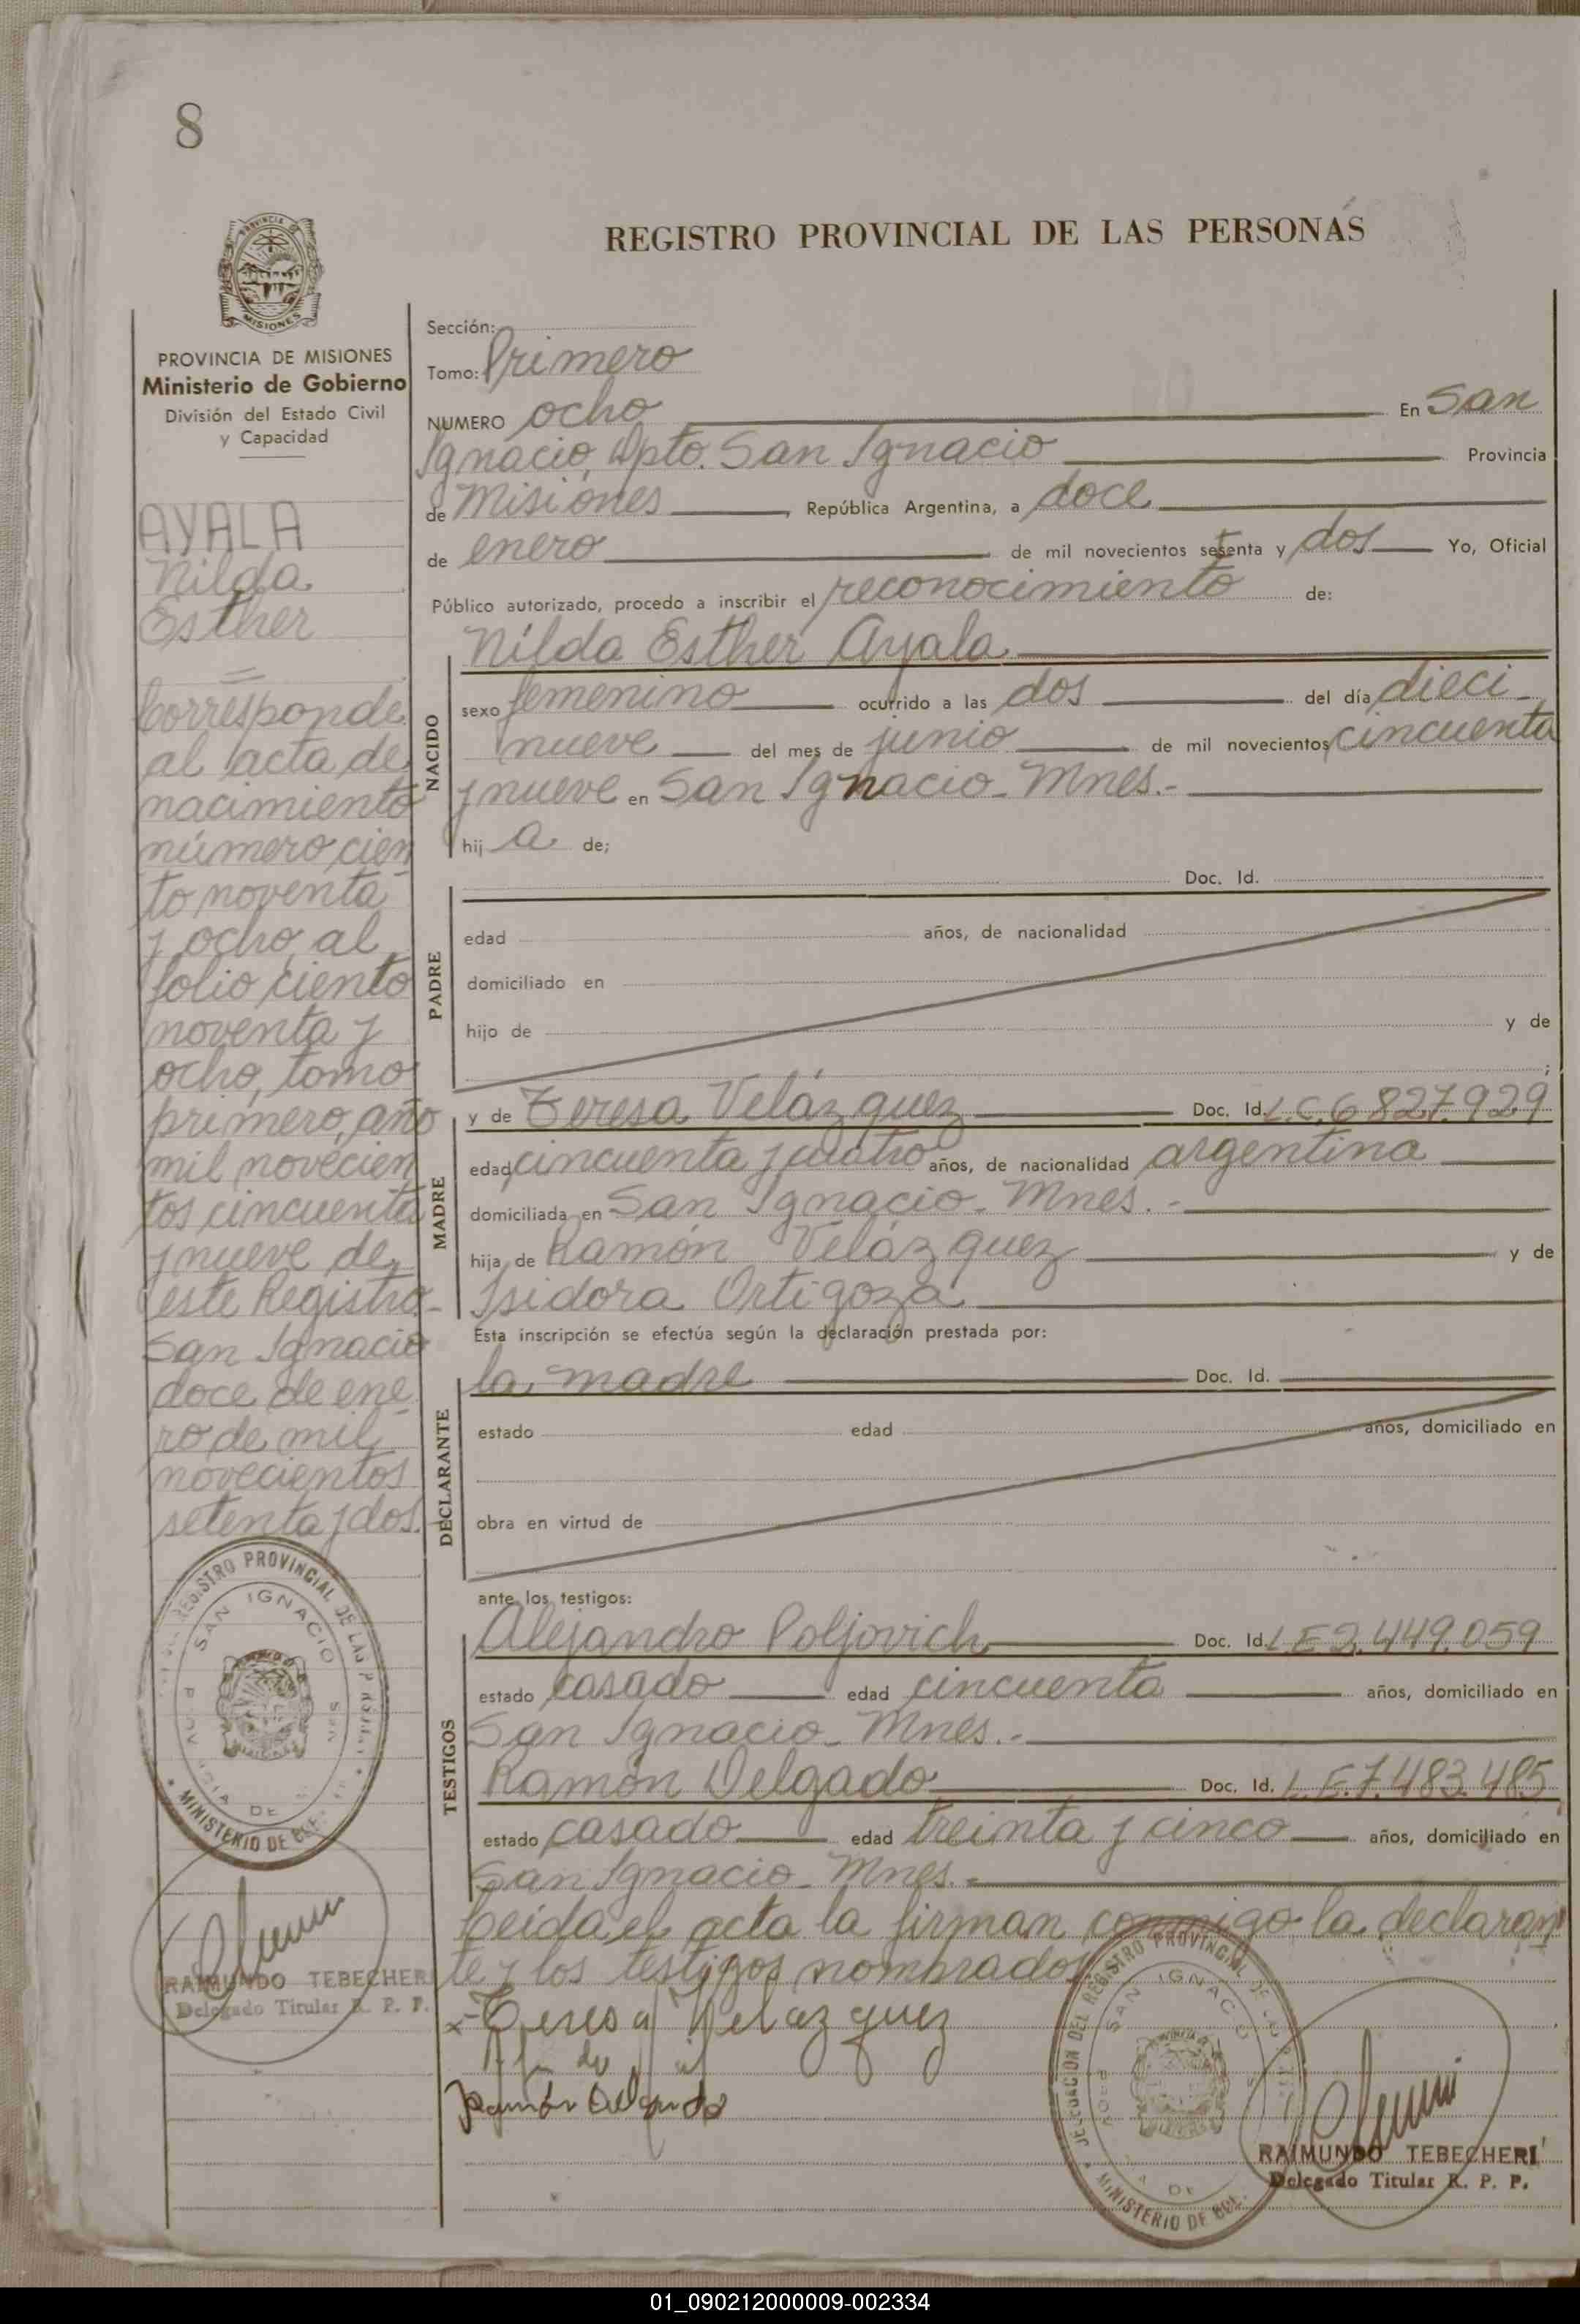 8
REGISTRO PROVINCIAL DE LAS PERSONAS
PROVINCIA DE
MISIONES
PROVINCIA DE MISIONES
Ministerio de Gobierno
División del Estado Civil
y Capacidad
AYALA
Nilda
Esther
Corresponde
al acta de
nacimiento
número cien
to noventa
y ocho, al
folio ciento
noventa y
ocho, tomo
primero, año
mil novecien
tos cincuenta
y nueve de
este Registro.-
San Ignacio
doce de ene
ro de mil
novecientos
setenta y dos.
REGISTRO PROVINCIAL DE LAS
SAN IGNACIO
MINISTERIO DE
RAIMUNDO TEBECHERI
Delegado Titular R. P. P.
Sección:
Tomo: Primero
NUMERO ocho En San
Ignacio, Dpto. San Ignacio Provincia
de Misiones, República Argentina, a doce
de enero de mil novecientos setenta y dos Yo, Oficial
Público autorizado, procedo a inscribir el reconocimiento de:
Nilda Esther Ayala
NACIDO
sexo femenino ocurrido a las dos del día dieci-
nueve del mes de junio de mil novecientos cincuenta
y nueve en San Ignacio - Mnes.-
hij a de;
PADRE
Doc. Id.
edad años, de nacionalidad
domiciliado en
hijo de y de
;
MADRE
y de Teresa Velázquez Doc. Id. L.C. 6.827.929
edad cincuenta y cuatro años, de nacionalidad argentina
domiciliada en San Ignacio - Mnes.-
hija de Ramón Velázquez y de
Isidora Ortigoza
Esta inscripción se efectúa según la declaración prestada por:
DECLARANTE
la madre Doc. Id.
estado edad años, domiciliado en
obra en virtud de
ante los testigos:
TESTIGOS
Alejandro Poljovich Doc. Id. L.E. 2.449.059
estado casado edad cincuenta años, domiciliado en
San Ignacio - Mnes.-
Ramón Delgado Doc. Id. L.E. 7.483.485
estado casado edad treinta y cinco años, domiciliado en
San Ignacio - Mnes.-
Leída el acta la firman conmigo la declaran
te y los testigos nombrados
x Teresa Velazquez
Ramón Delgado
DELEGACION DEL REGISTRO PROVINCIAL DE
SAN IGNACIO
MINISTERIO DE
RAIMUNDO TEBECHERI
Delegado Titular R. P. P.
01_090212000009-002334